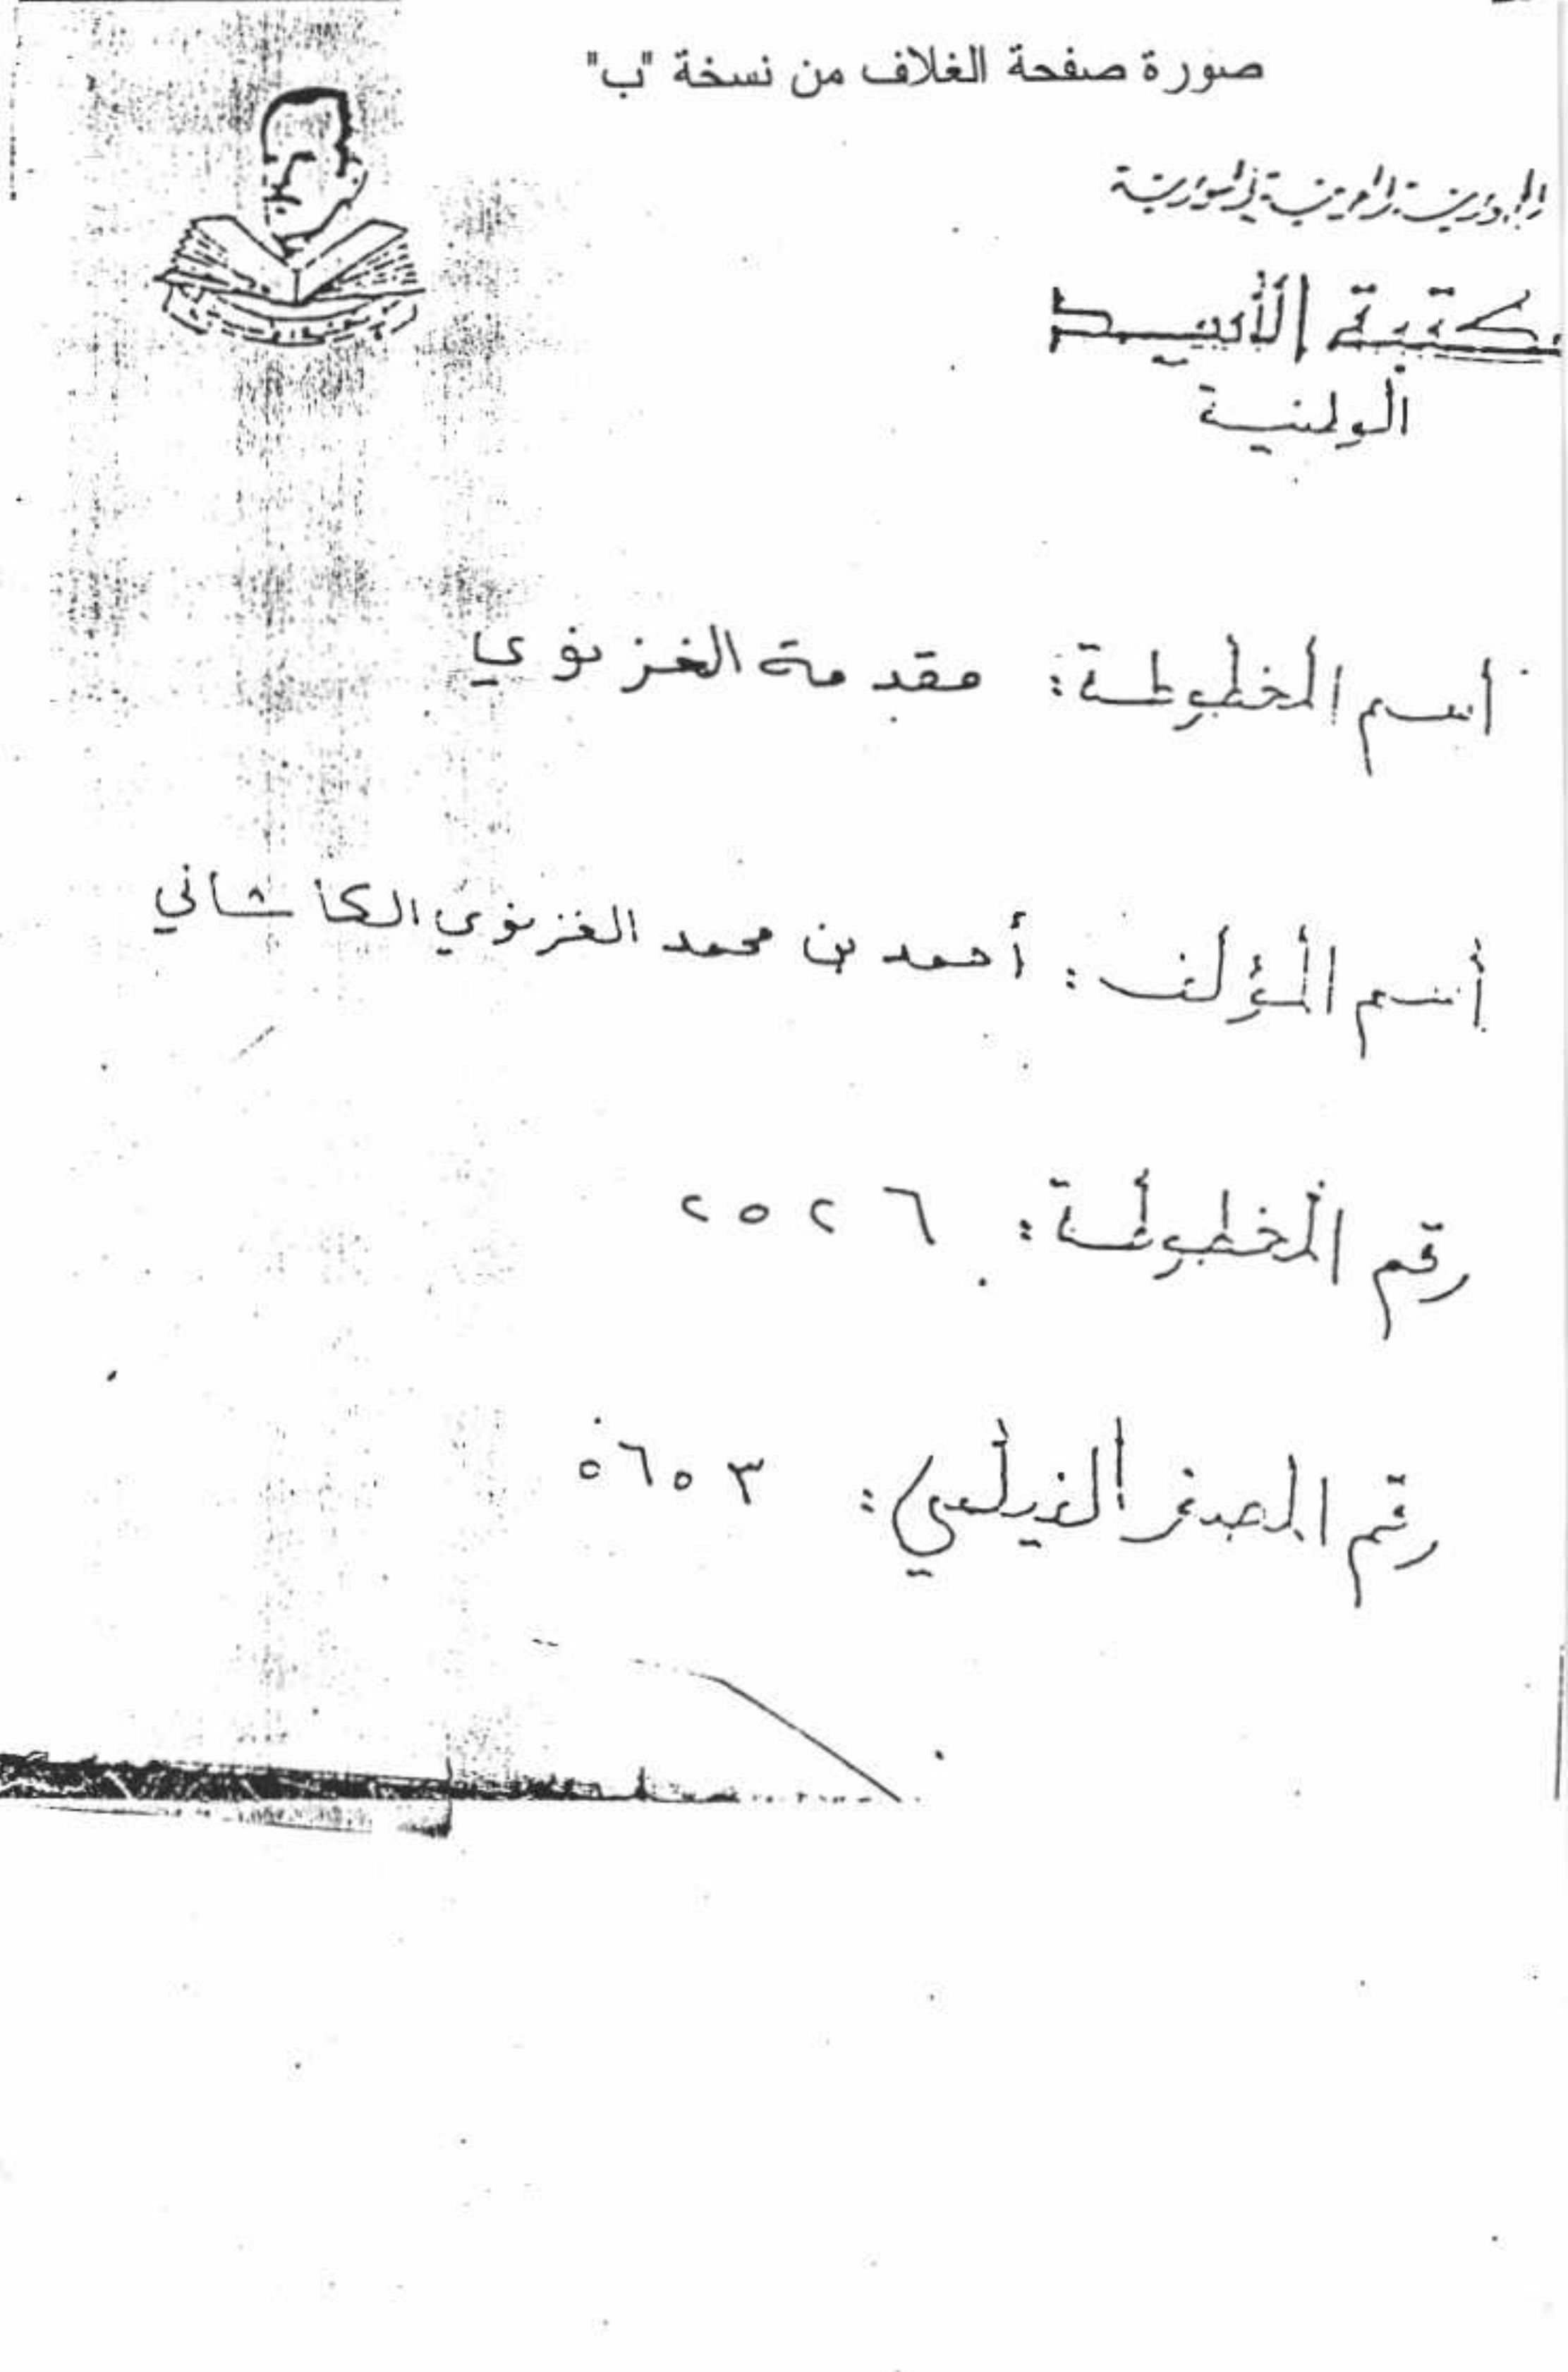 صورة صفحة الغلاف من نسخة "ب"
الجمهورية العربية السورية
مكتبة الأسد
الوطنية
اسم المخطوطة: مقدمة الغزنوي
أسم المؤلف: أحمد بن محمد الغزنوي الكاشاني
رقم المخطوطة: ٢٥٢٦
رقم المصغر الفيلمي: ٥٦٥٣